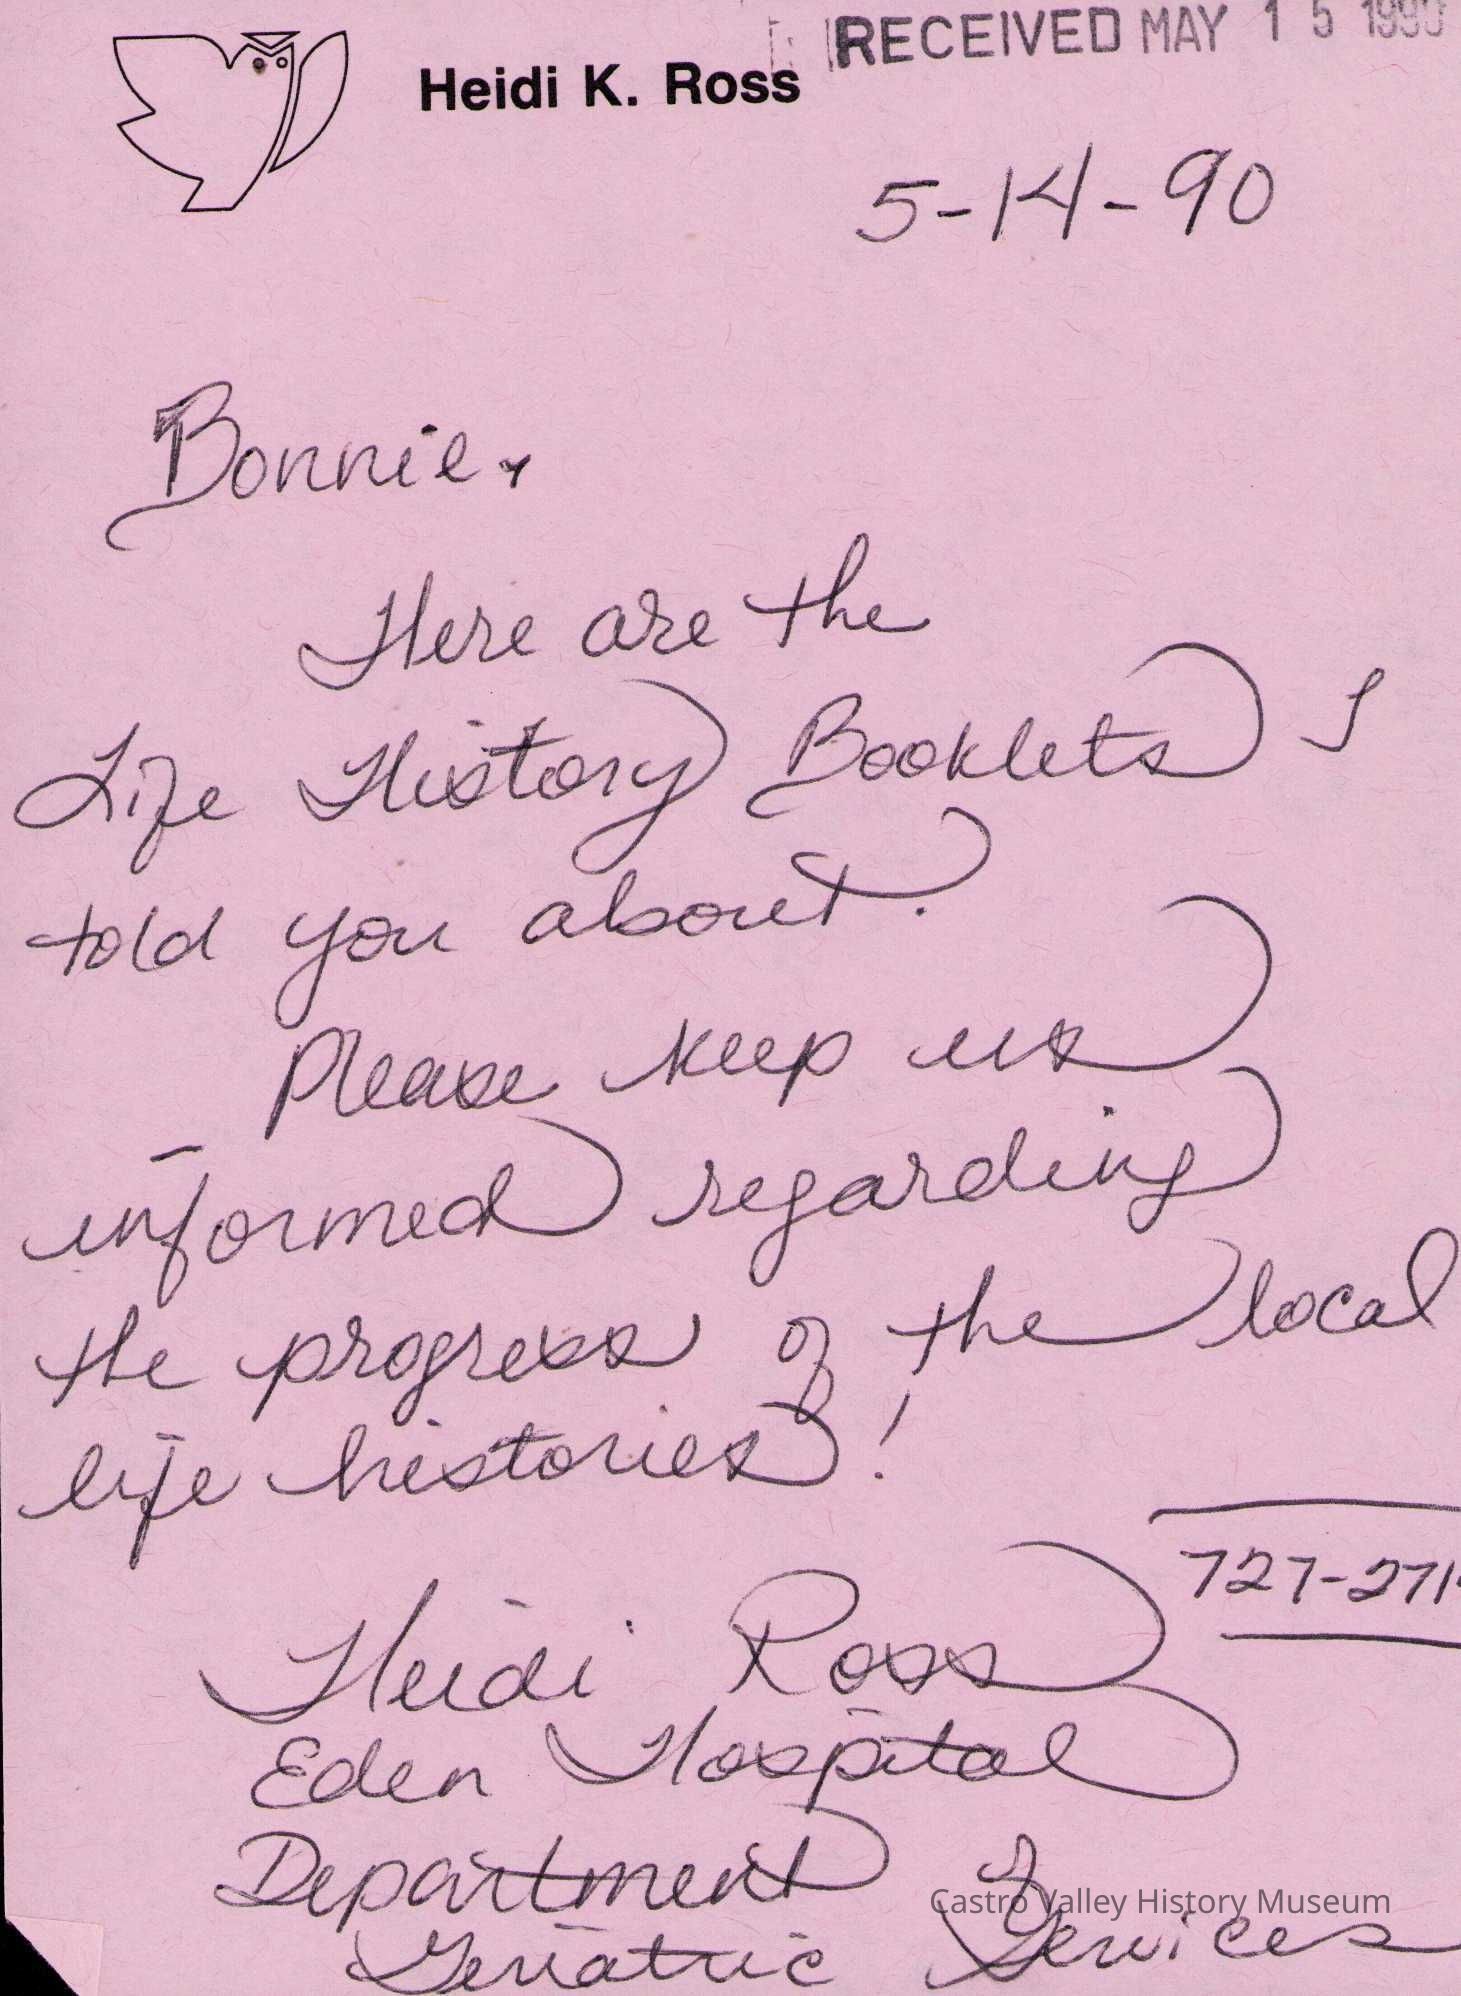 RECEIVED MAY 15 1990
Heidi K. Ross
5-14-90
Bonnie,
Here are the
Life History Booklets I
told you about.
Please keep us
informed regarding
the progress of the local
life histories!
727-271
Heidi Ross
Eden Hospital
Department of
Geriatric Services
Castro Valley History Museum